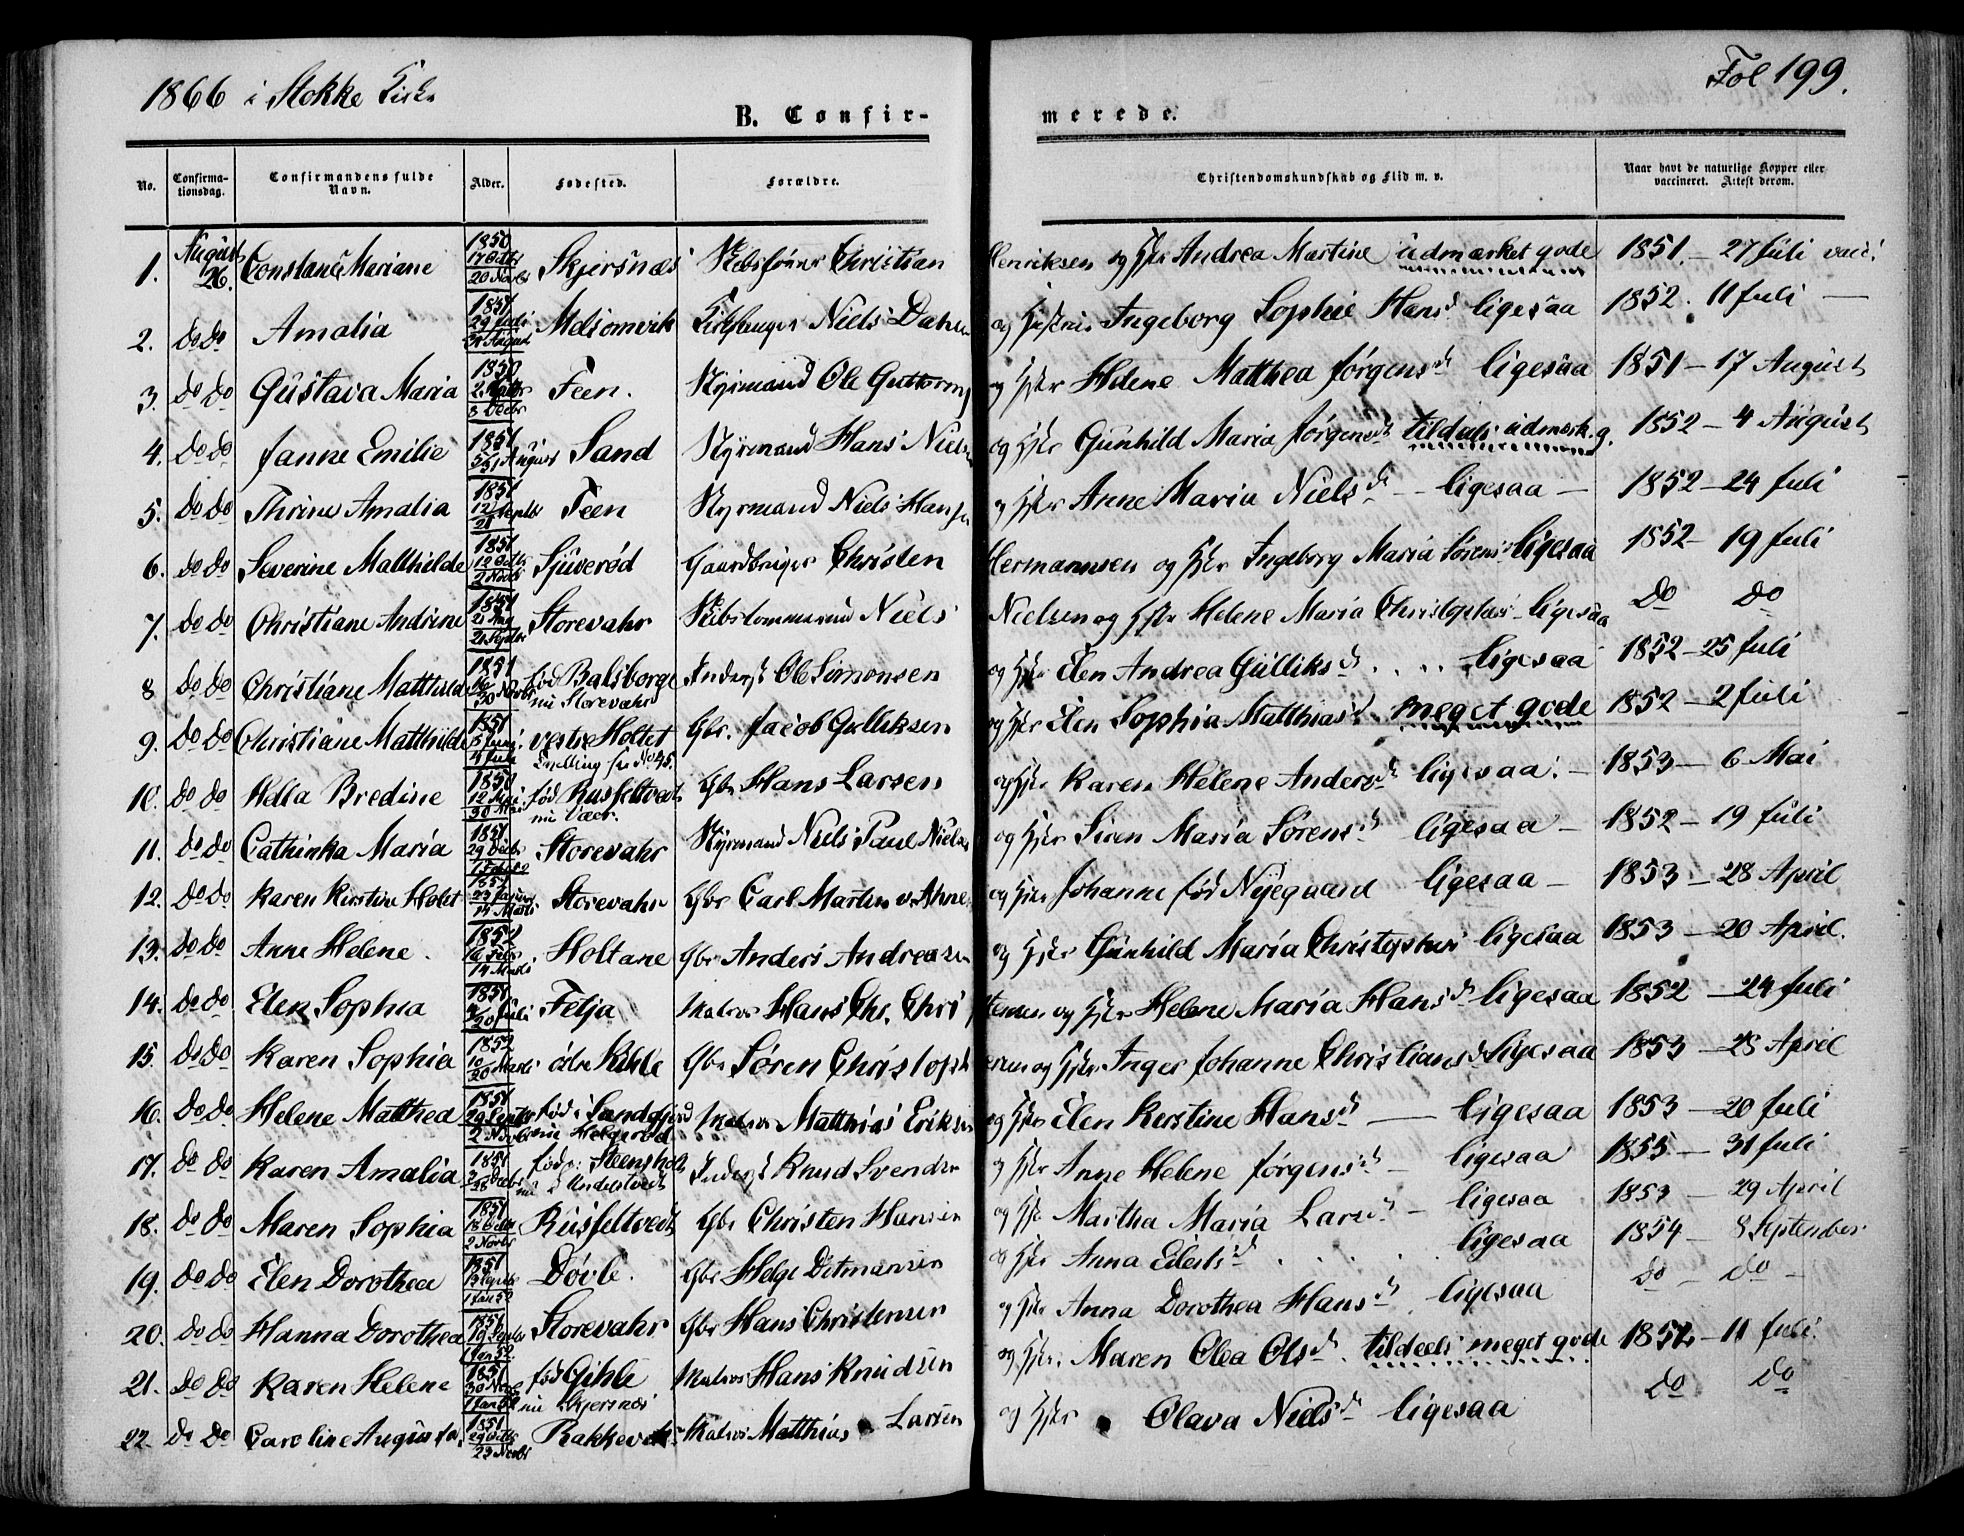 1866 i Stokke Kirke
Fol 199.
B. Confirmerede.
No. Confirmationsdag. Confirmandens fulde Navn. Alder. Fødested. Forældre. Christendomskundskab og Flid m. v. Naar havt de naturlige Kopper eller vaccineret. Attest derom.
1. August 26. Constance Mariane 1850 17 Octbr 20 Novbr Skjersnæs Christian Henriksen og Hstr Andrea Martine üdmærket gode 1851. – 27 Jüli vacc.
2. do do Amalia 1851 Melsomvik Niels Dahl og Ingeborg Sophie Hans d. ligesaa 1852. 11 Juli —
3. do do Güstava Maria 1850 8 Decbr Feen. Styrmand Ole Guttorms og Hstr Helene Matthea Jørgens d. ligesaa 1851 – 17 August
4. do do Janne Emilie 1851 August Sand Styrmand Hans Niels og Hstr Gunhild Maria Jørgens d. tildels üdmærk. g. 1852 – 4 August
5. do do Thrine Amalia 1851 12 21 Septbr Feen Styrmand Niels Hans og Hstr Anne Maria Niels d. – ligesaa – 1852 – 24 Juli
6. do do Severine Matthilde 1851 12 Octbr 2 Novbr Sjüverød Gaardbruger Christen Hermannsen og Hstr Ingeborg Maria Sørens d. ligesaa 1852 – 19 Juli
7. do do Christiane Andrine 1851 21 Aug 21 Septbr Storevahr Niels Nielsen og Hstr Helene Maria Christophers – ligesaa do do
8 do do Christiane Matthilde 1851 30 Novbr fød Balsborge nu Storevahr Inderst Ole Simonsen og Hstr Elen Andrea Gülliks d. . . . ligesaa 1852 – 25 Juli
9. do do Christiane Matthilde 1851 5 Juni 4 Juli vestre Holtet Gbr. Jacob Gulliksen og Hstr Elen Sophia Matthias d. meget gode 1852 – 2 Juli
10. do do Hella Bredine 1850 12 Mai 30 Mai fød Rusfeltvedt nu Vaer. Gbr Hans Larsen og Hstr Karen Helene Anders d. ligesaa. – 1853 – 6 Mai
11. do do Cathinka Maria 1851 29 Decbr Storevahr Styrmand Niels Paul Niels og Hstr Siren Maria Sørens d. ligesaa – 1852 – 19 Jüli
12. do do Karen Kirstine Holst 1852 23 Januar 14 Marts Storevahr Gbr Carl Martin v. Ahnen og Hstr Johanne fød Nyegaard ligesaa – 1853 – 28 April
13. do do Anne Helene. 1852 16 Febr 14 Marts Holtane Gbr Anders Andreasen og Hstr Günhild Maria Christophers ligesaa 1853 – 20 April.
14. do do Elen Sophia 1851 20 Juli Felja Matros Hans Chr. Christensen og Hstr Helene Maria Hans d. ligesaa 1852 – 24 Juli
15. do do Karen Sophia 1852 10 20 Marts østre Kihle Gbr Søren Christophersen og Hstr Inger Johanne Christians d. ligesaa 1853 – 28 April
16. do do Helene Matthea 1851 29 Septbr 2 Novbr fød i Sandefjord nu Helgerød Matros Matthias Eriksen og Hstr Elen Kirstine Hans d. – ligesaa 1853 – 20 Juli
17. do do Karen Amalia 1851 Decbr fød p. Steensholt nu i Undelstvedt Inderst Knud Svends og Hstr Anne Helene Jørgens d. – ligesaa 1855 – 31 Juli
18. do do Maren Sophia 1851 18 Octbr 2 Novbr Rusfeltvedt Gbr Christen Hansen og Hstr Martha Maria Lars d. – ligesaa 1853 – 29 April
19. do do Elen Dorothea 1851 1 Jan 52 Døvle. Gbr Helge Ditmansen og Hstr Anna Eilerts d. . . . ligesaa 1854 – 8 September
20. do do Hanna Dorothea 1851 1 Jan 52. Storevahr Gbr Hans Christensen og Hstr Anna Dorothea Hans d. ligesaa do – do –
21. do do Karen Helene 1851 30 Novbr 1 Jan 52 fød Gihle nu Skjersnæs Matros Hans Knudsen og Hstr. Maren Olea Ols d. tildeels meget gode 1852 – 11 Juli.
22. do do Caroline Augusta. 1851 29 Octbr 23 Novbr Rakkevik Matros Matthias Larsen og Hstr Olava Niels d. ligesaa do do